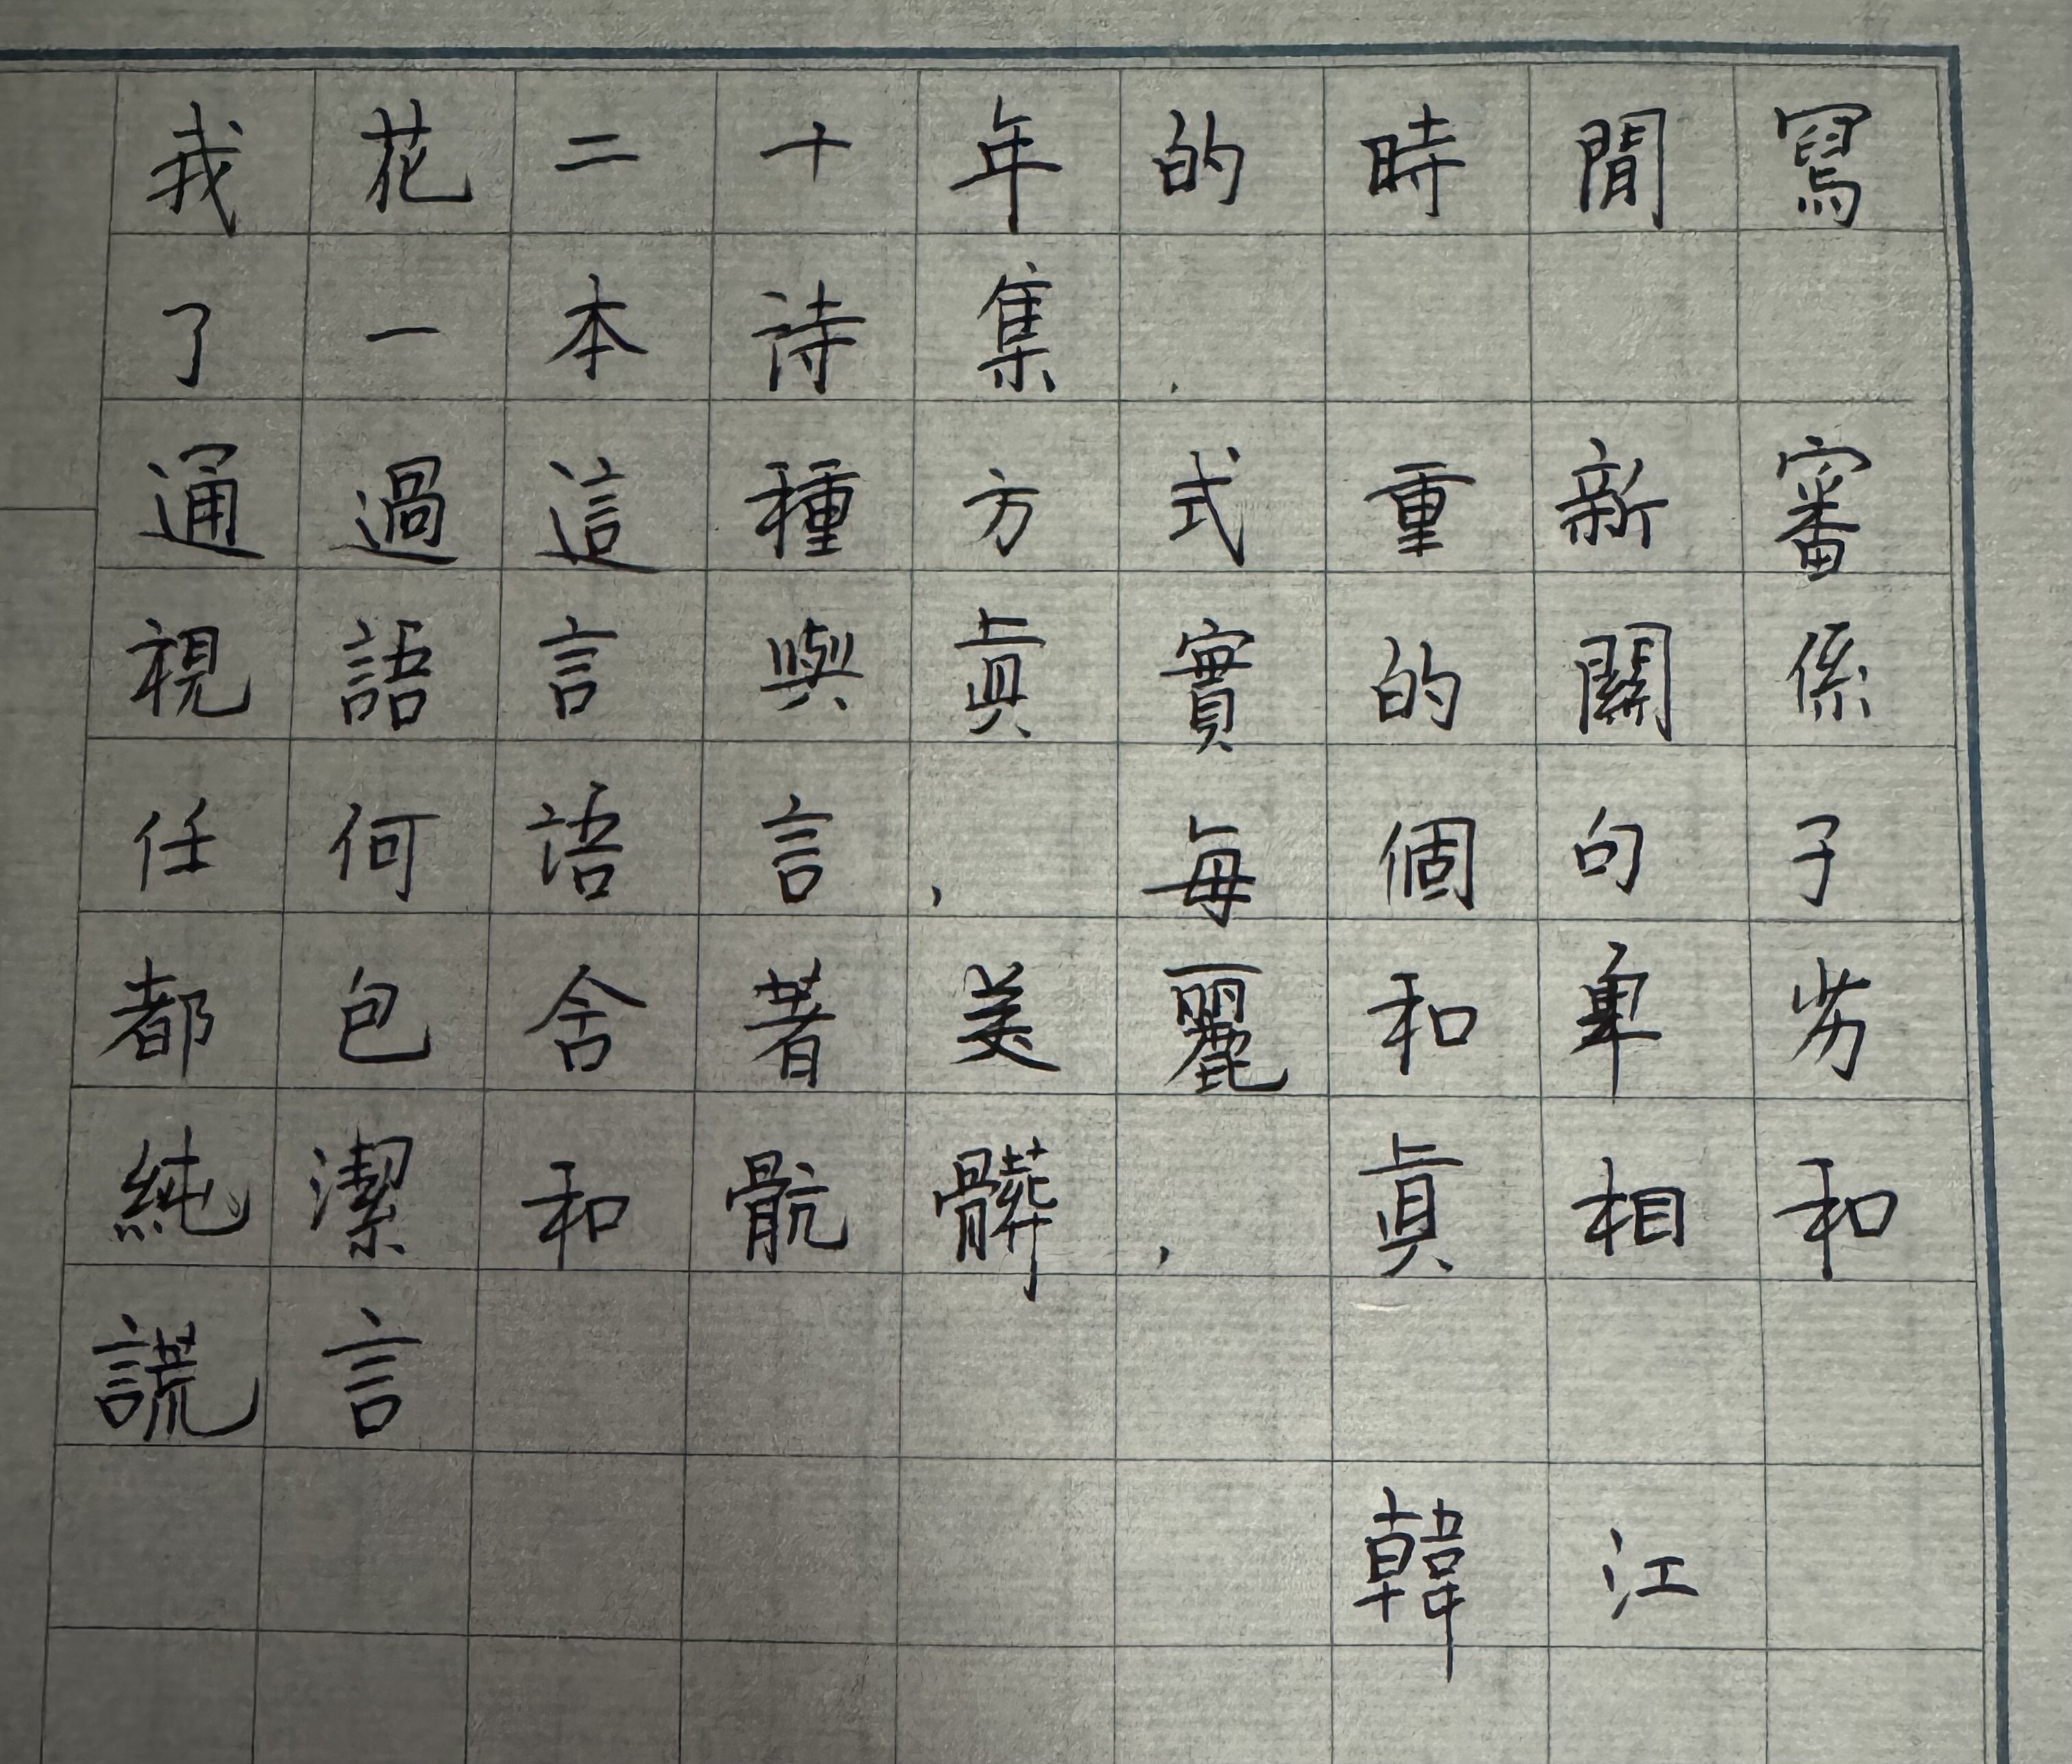 我花二十年的時間寫
了一本詩集.
通過這種方式重新審
視語言與眞實的關係
任何語言,每個句子
都包含著美麗和卑劣
純潔和骯髒,眞相和
謊言
韓江